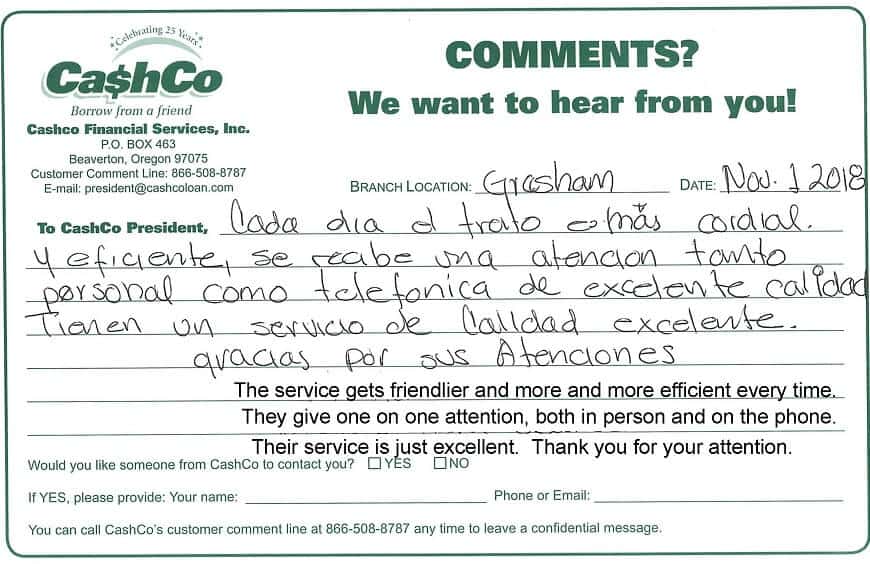 Celebrating 25 Years
Ca$hCo
Borrow from a friend
Cashco Financial Services, Inc.
P.O. BOX 463
Beaverton, Oregon 97075
Customer Comment Line: 866-508-8787
E-mail: president@cashcoloan.com
COMMENTS?
We want to hear from you!
BRANCH LOCATION: Grasham DATE: Nov. 1 2018
To CashCo President, Cada dia el trato es más cordial.
y eficiente, se recibe una atencion tanto
personal como telefonica de excelente calidad
Tienen un servicio de Calidad excelente.
gracias por sus Atenciones
The service gets friendlier and more and more efficient every time.
They give one on one attention, both in person and on the phone.
Their service is just excellent. Thank you for your attention.
Would you like someone from CashCo to contact you? ☐ YES ☐ NO
If YES, please provide: Your name: Phone or Email:
You can call CashCo's customer comment line at 866-508-8787 any time to leave a confidential message.